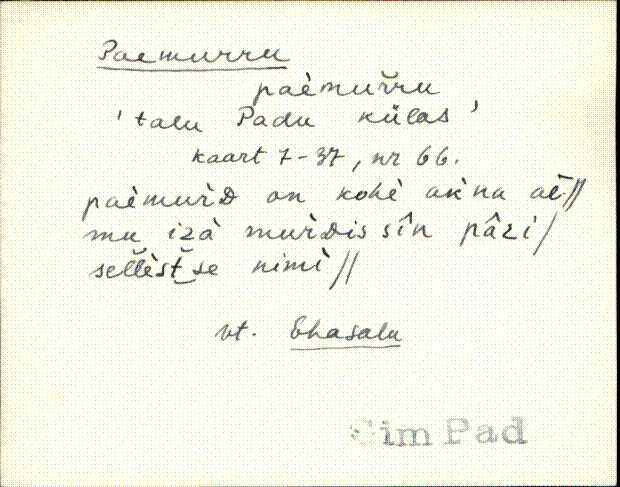 Paemurru
paèmur̆ru
'talu Padu külas'
kaart 7-37, nr 66.
paèmur̀D on kohè ak̀na aè̄//
mu izà mur̀Dis sîn pâzi/
sel̆lèst̆‿se nimì//
vt. Ehasalu
Sim Pad